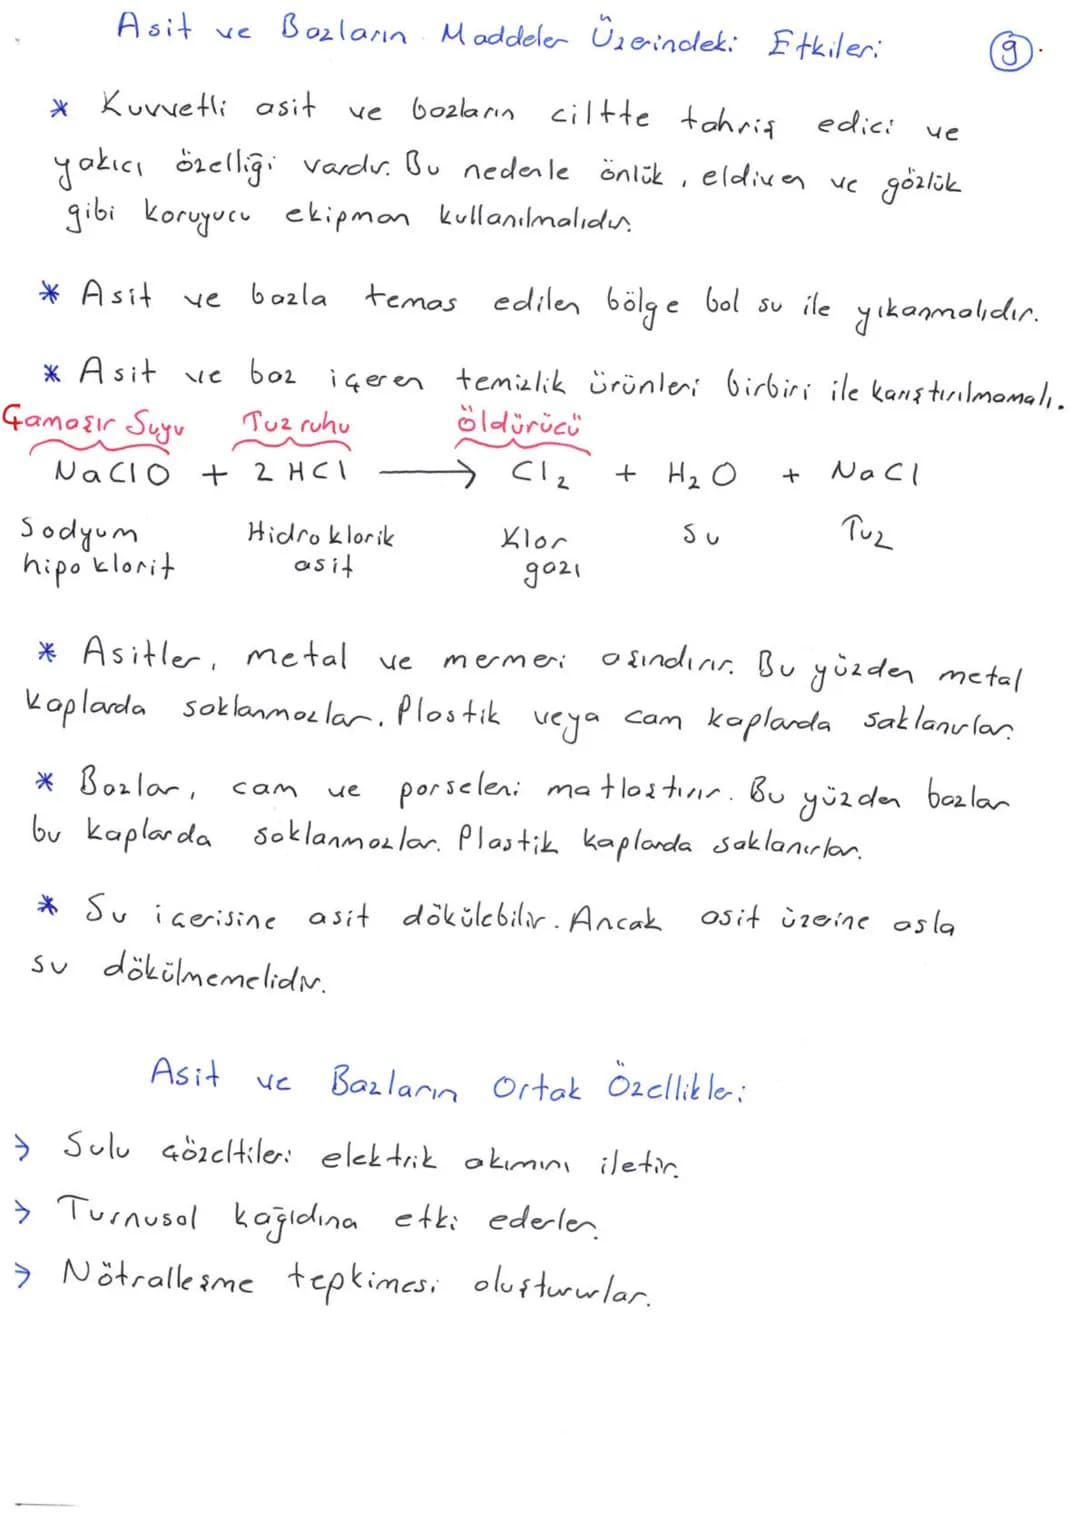 Asit ve Bazların Maddeler Üzerindeki Etkileri
9
* Kuvvetli asit ve bazların ciltte tahriş edici ve
yakıcı özelliği vardır. Bu nedenle önlük, eldiven ve gözlük
gibi koruyucu ekipman kullanılmalıdır.
* Asit ve bazla temas edilen bölge bol su ile yıkanmalıdır.
* Asit ve baz içeren temizlik ürünleri birbiri ile karıştırılmamalı.
Çamaşır Suyu Tuz ruhu öldürücü
NaClO + 2 HCl → Cl₂ + H₂O + NaCl
Sodyum hipo klorit Hidro klorik asit Klor gazı Su Tuz
* Asitler, metal ve mermeri aşındırır. Bu yüzden metal
kaplarda saklanmazlar. Plastik veya cam kaplarda saklanırlar.
* Bazlar, cam ve porseleni matlaştırır. Bu yüzden bazlar
bu kaplarda saklanmazlar. Plastik kaplarda saklanırlar.
* Su içerisine asit dökülebilir. Ancak asit üzerine asla
su dökülmemelidir.
Asit ve Bazların Ortak Özellikleri
→ Sulu çözeltileri elektrik akımını iletir.
→ Turnusol kağıdına etki ederler.
→ Nötralleşme tepkimesi oluştururlar.